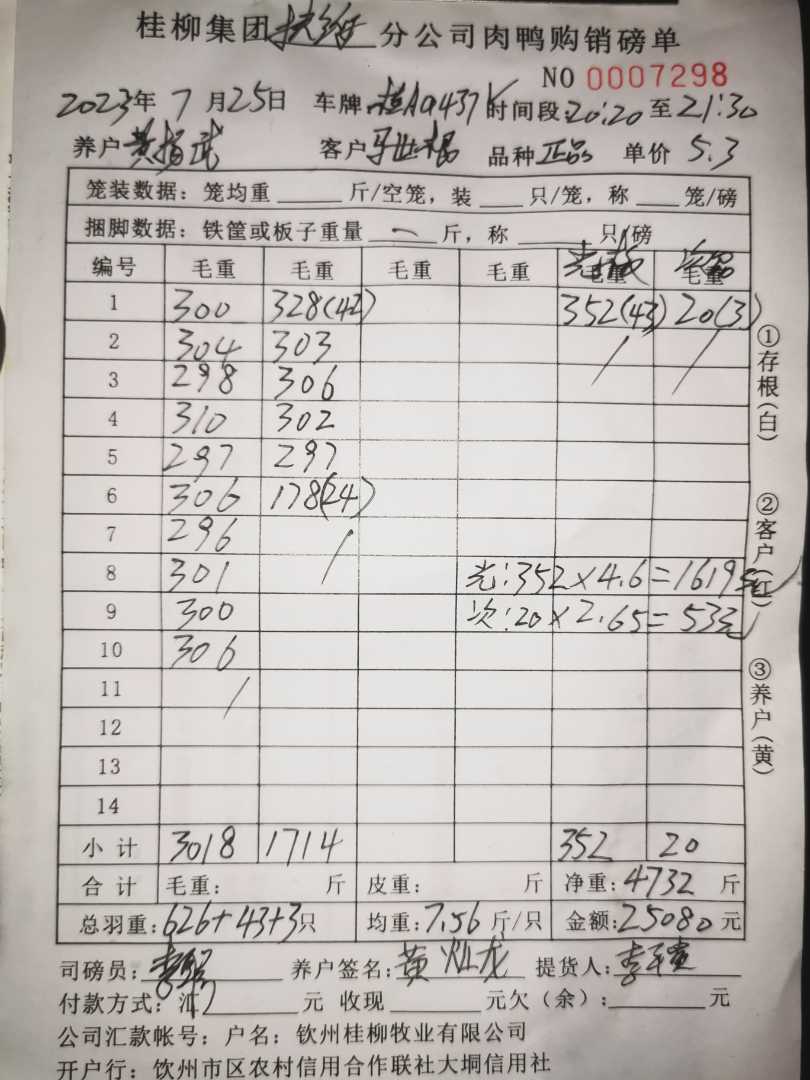 桂柳集团扶绥分公司肉鸭购销磅单
NO 0007298
2023年 7月25日 车牌:桂AQ437 时间段:20:20 至 21:30
养户 黄 武 客户 品种 正品 单价 5.3
笼装数据: 笼均重 斤/空笼, 装 只/笼, 称 笼/磅
捆脚数据: 铁筐或板子重量 斤, 称 只/磅
编号 毛重 毛重 毛重 毛重 毛重 次品 毛重
1 300 328(42) 352(43) 20(3)
2 304 303 / /
3 298 306
4 310 302
5 297 297
6 306 178(24)
7 296 /
8 301 光:352×4.6=1619元
9 300 次:20×2.65=53元
10 306
11 /
12
13
14
小计 3018 1714 352 20
合计 毛重: 斤 皮重: 斤 净重:4732 斤
总羽重:626+43+3只 均重:7.56 斤/只 金额:25080元
司磅员: 李 养户签名:黄灿龙 提货人:李
付款方式:汇 元 收现 元欠(余): 元
公司汇款帐号: 户名: 钦州桂柳牧业有限公司
开户行: 钦州市区农村信用合作联社大垌信用社
①存根(白)
②客户(红)
③养户(黄)